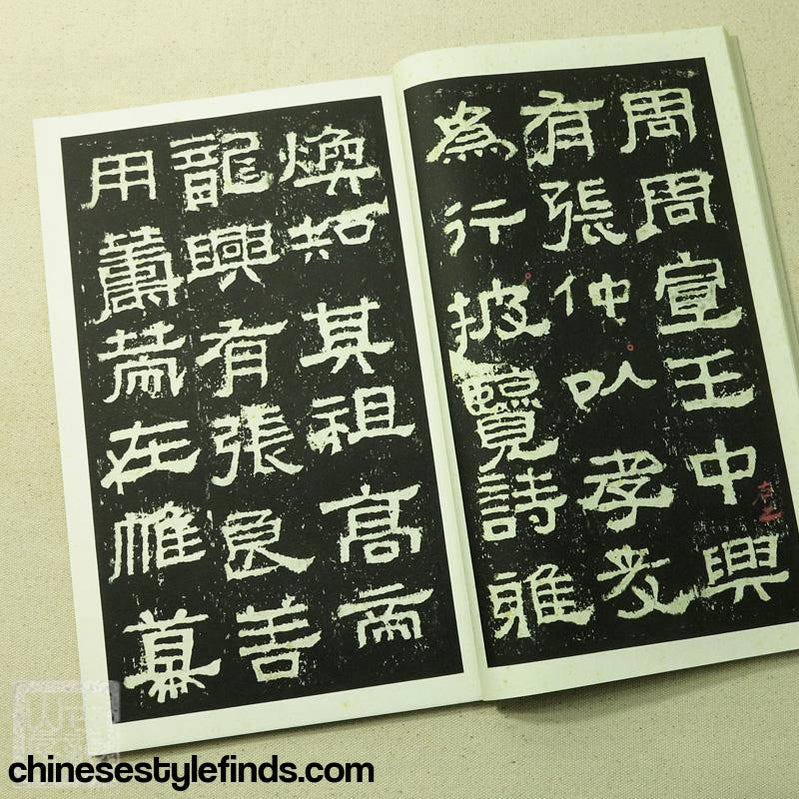 周周宣王中興
有張仲以孝友
為行披覽詩雅
煥知其祖高帝
龍興有張良善
用籌策在帷幕
chinesestylefinds.com